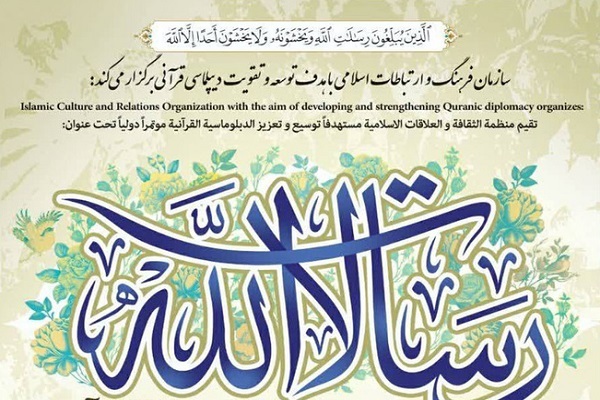 الَّذِينَ يُبَلِّغُونَ رِسَالَاتِ اللَّهِ وَيَخْشَوْنَهُ وَلَا يَخْشَوْنَ أَحَدًا إِلَّا اللَّهَ
سازمان فرهنگ و ارتباطات اسلامی با هدف توسعه و تقویت دیپلماسی قرآنی برگزار می‌کند:
Islamic Culture and Relations Organization with the aim of developing and strengthening Quranic diplomacy organizes:
تقيم منظمة الثقافة و العلاقات الاسلامية مستهدفاً توسيع و تعزيز الدبلوماسية القرآنية موتمراً دولياً تحت عنوان:
رسالات الله